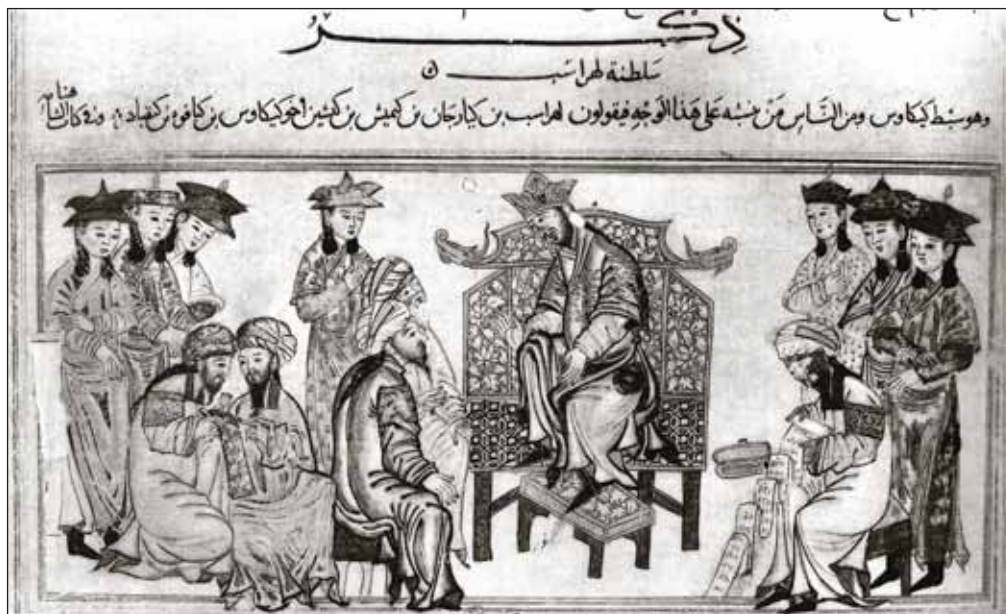 ذكر
سلطنة لهراسب
وهو سبط كيكاوس ومن الناس من نسبه على هذا الوجه فيقولون لهراسب بن كيارجان بن كيميش بن كيشين أخو كيكاوس بن كيافوه بن كيقباد وقد كان